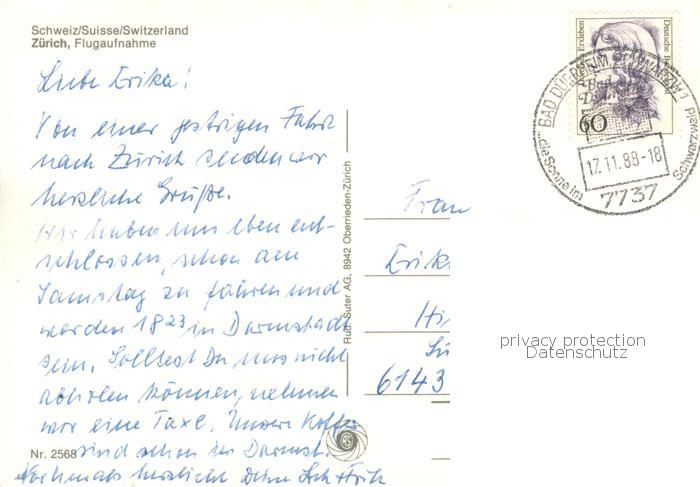 Schweiz/Suisse/Switzerland
Zürich, Flugaufnahme
Liebe Erika!
Von einer gestrigen Fahrt
nach Zürich senden wir
herzliche Grüße.
Wir haben uns eben ent-
schlossen, schon am
Samstag zu fahren und
werden 1823 in Darmstadt
sein. Solltest Du uns nicht
abholen können, nehmen
wir eine Taxe. Unsere Koffer
sind schon in Darmst.
Nochmals herzlichst Deine
Nr. 2568
Rud. Suter AG, 8942 Oberrieden-Zürich
Frau
Erika
Hi
6143
Deutsche Bundespost
60
BAD DÜRRHEIM SCHWARZW 1
17.11.88-18
7737
...die Sonne im Schwarzwald
privacy protection
Datenschutz